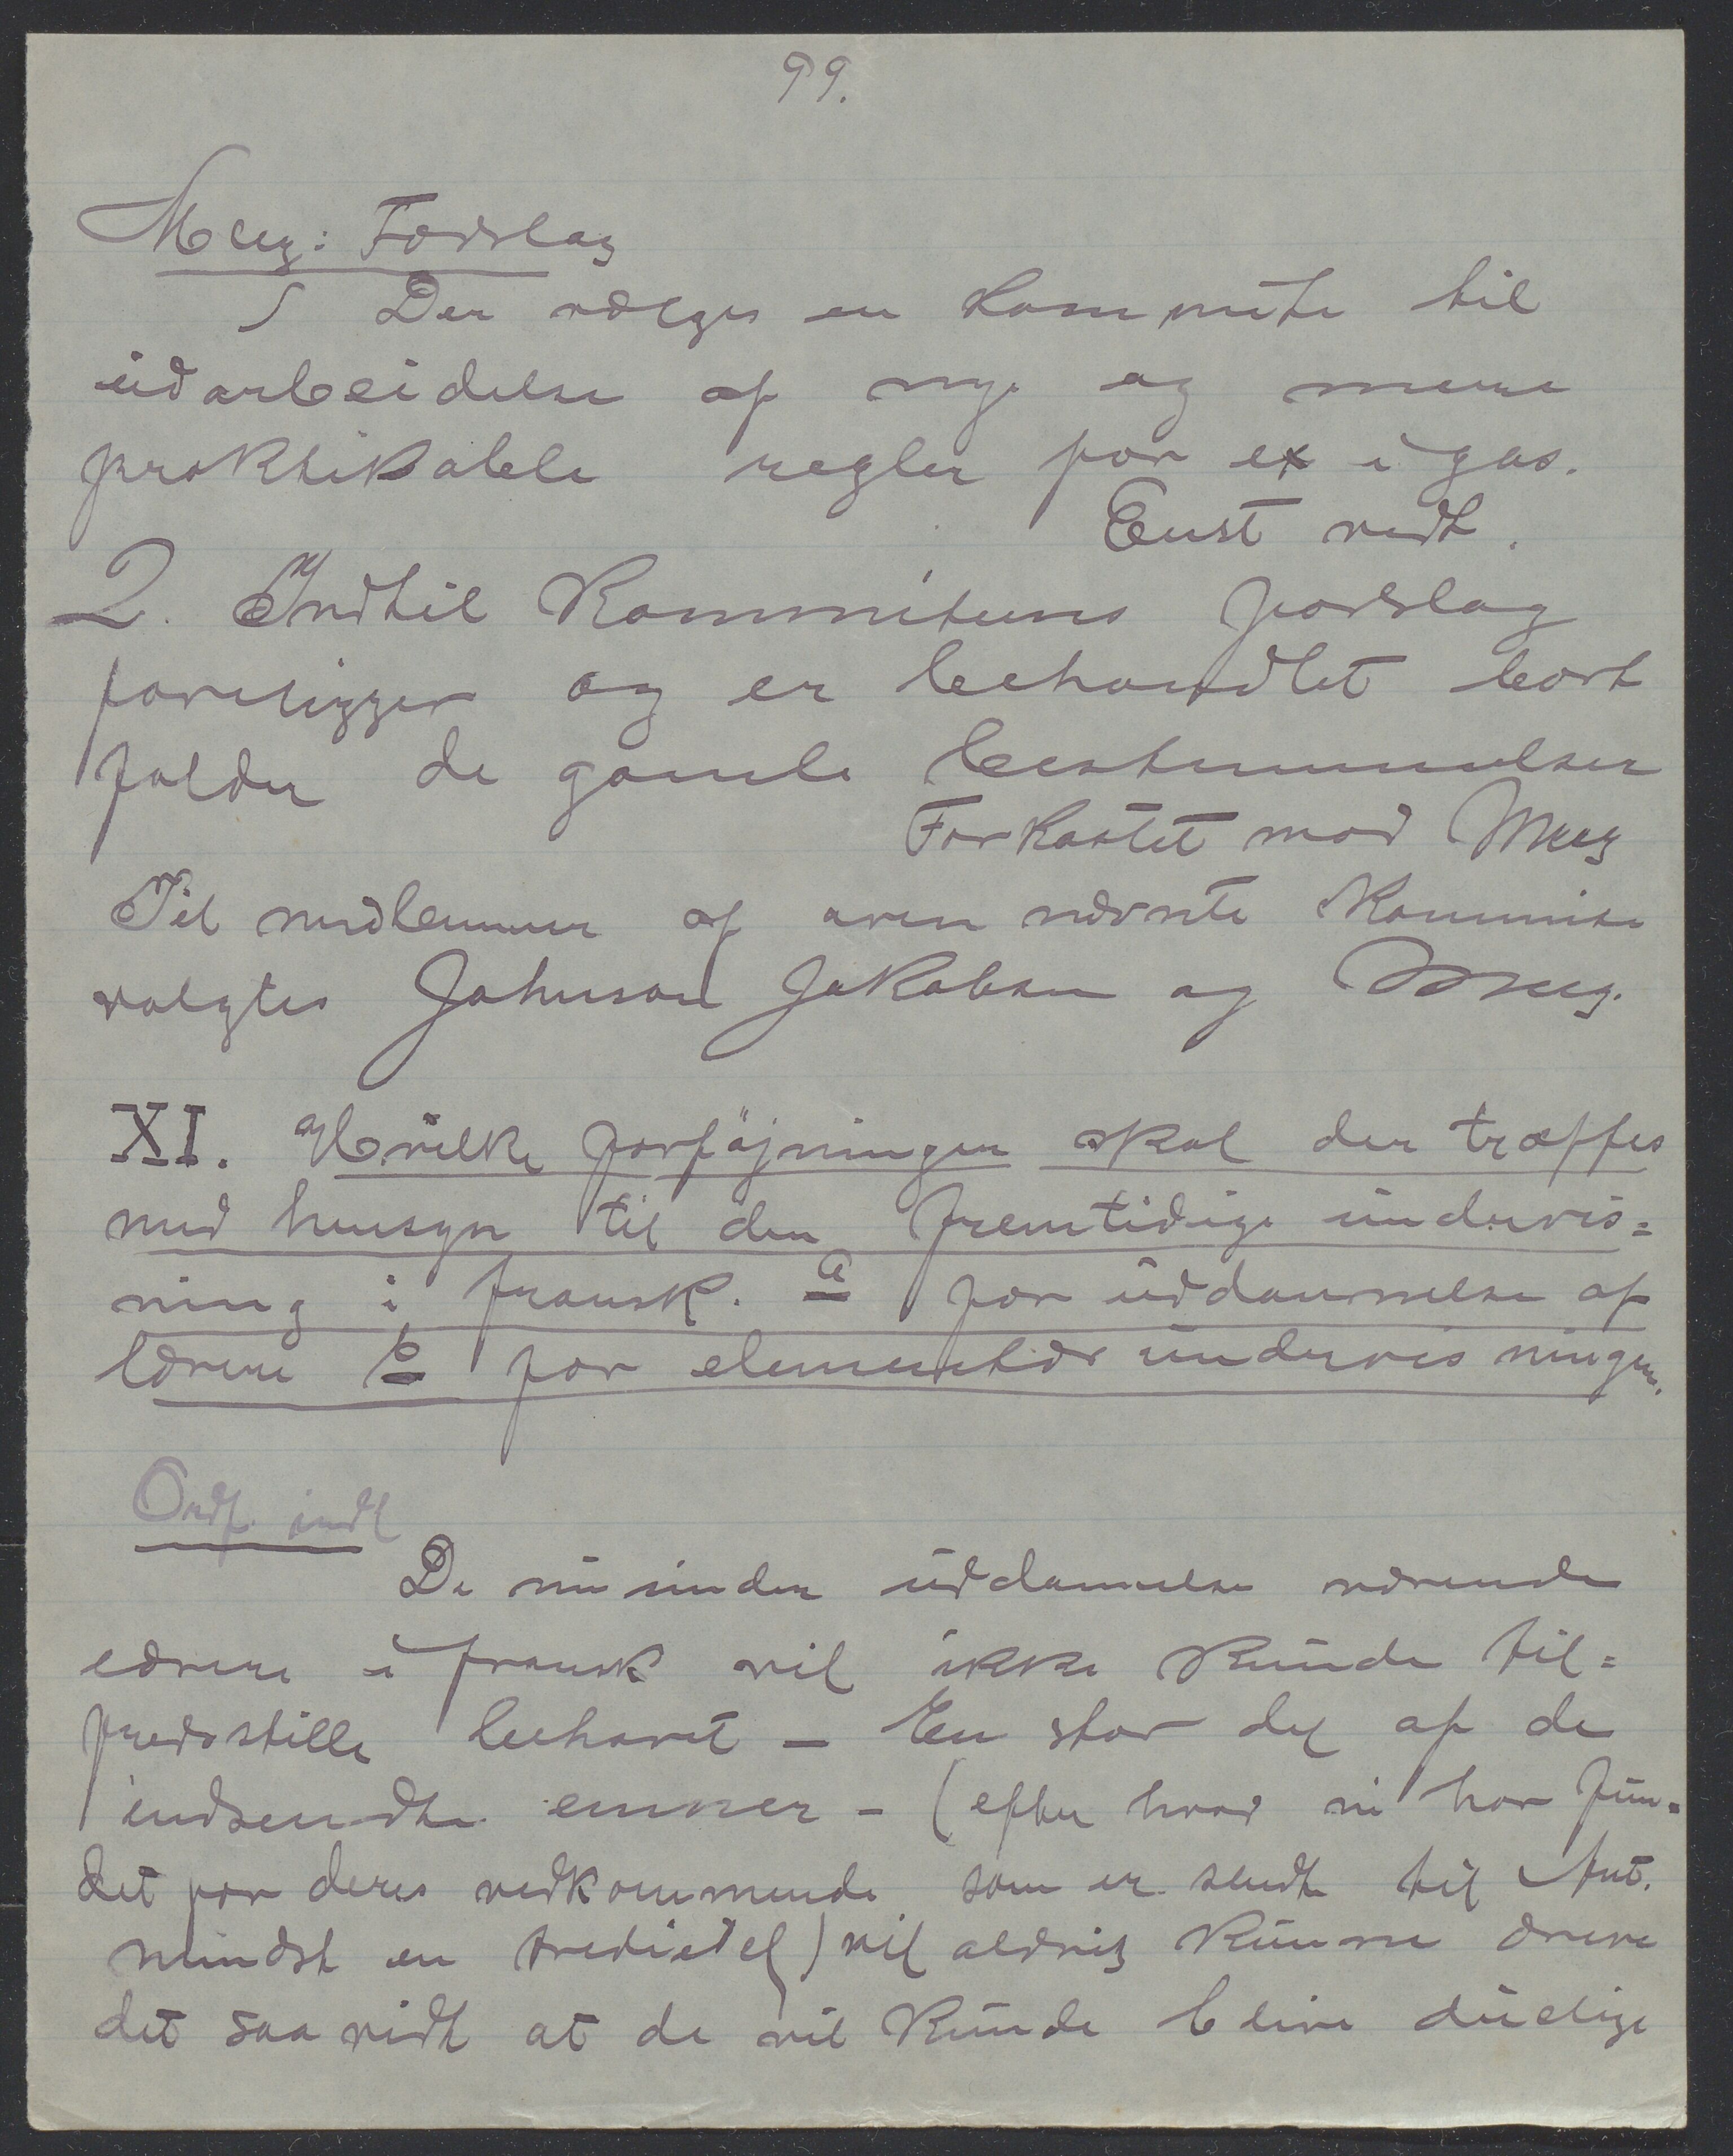 99.
Meeg: Forslag
1 Der vælges en kommite til
udarbeidelse af nye og mere
praktikable regler for ex i gas.
Enst vedt.
2. Indtil Kommiteens forslag
foreligger og er behandlet bort
falder de gamle bestemmelser
Forkastet mod Meeg
Til medlemmer af oven nævnte Kommite
valgtes Johnson Jakobsen og Meeg.
XI. Hvilke forføjninger skal der træffes
med hensyn til den fremtidige undervis=
ning i fransk. a for uddannelse af
lærere b for elementær undervisningen.
Ordf. indl
De nu under uddannelse værende
lærere i fransk vil ikke kunde til=
fredsstille behovet – En stor del af de
indsendte emner – (efter hvad vi har fun=
det for deres vedkommende som er sendt til Ant.
mindst en trediedel) vil aldrig kunne drive
det saa vidt at de vil kunde blive duelige